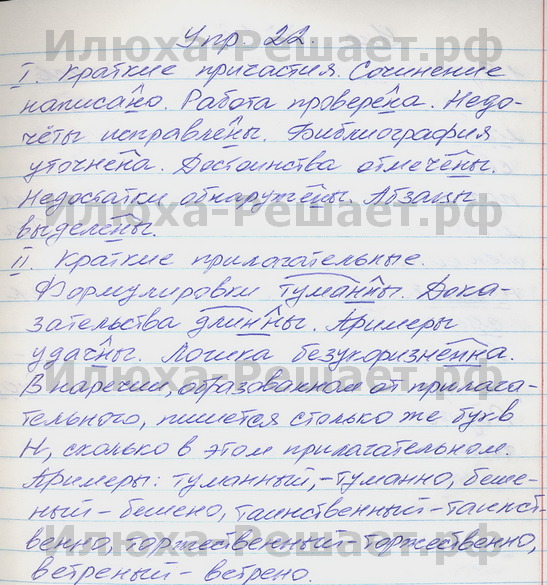 Упр. 22.
I. Краткие причастия. Сочинение
написано. Работа проверена. Недо-
чёты исправлены. Библиография
уточнена. Достоинства отмечены.
Недостатки обнаружены. Абзацы
выделены.
II. Краткие прилагательные.
Формулировки туманны. Дока-
зательства длинны. Примеры
удачны. Логика безукоризненна.
В наречии, образованном от прилага-
тельного, пишется столько же букв
Н, сколько в этом прилагательном.
Примеры: туманный, - туманно, беше-
ный - бешено, таинственный - таинст-
венно, торжественный - торжественно,
ветреный - ветрено.
Илюха-Решает.рф
Илюха-Решает.рф
Илюха-Решает.рф
Илюха-Решает.рф
Илюха-Решает.рф